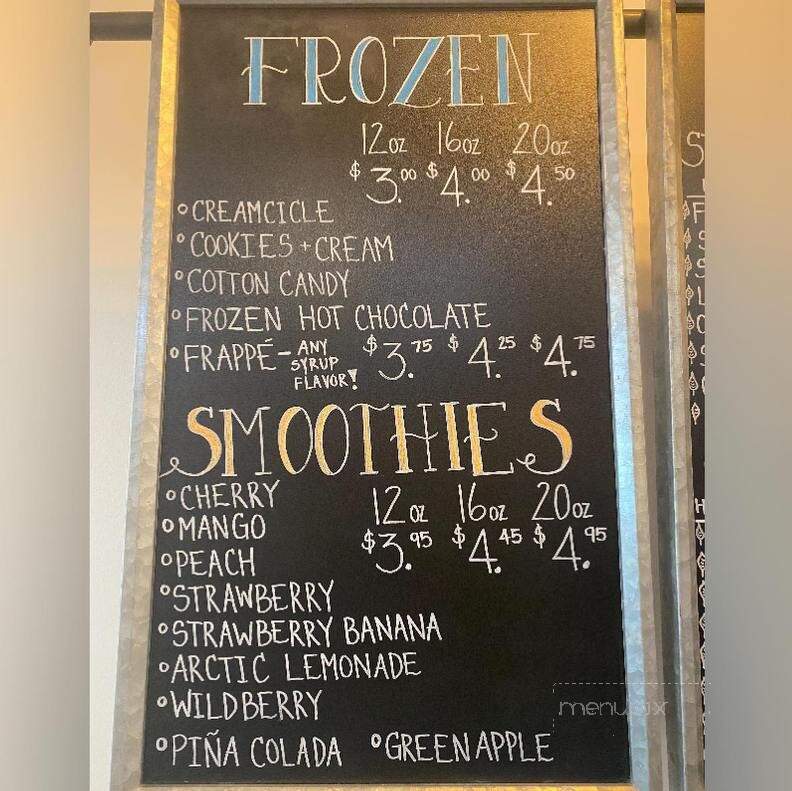 FROZEN
12oz 16oz 20oz
$3.00 $4.00 $4.50
°CREAMCICLE
°COOKIES+CREAM
°COTTON CANDY
°FROZEN HOT CHOCOLATE
°FRAPPÉ - ANY SYRUP FLAVOR! $3.75 $4.25 $4.75
SMOOTHIES
°CHERRY 12oz 16oz 20oz
°MANGO $3.95 $4.45 $4.95
°PEACH
°STRAWBERRY
°STRAWBERRY BANANA
°ARCTIC LEMONADE
°WILDBERRY
°PIÑA COLADA °GREEN APPLE
menupix